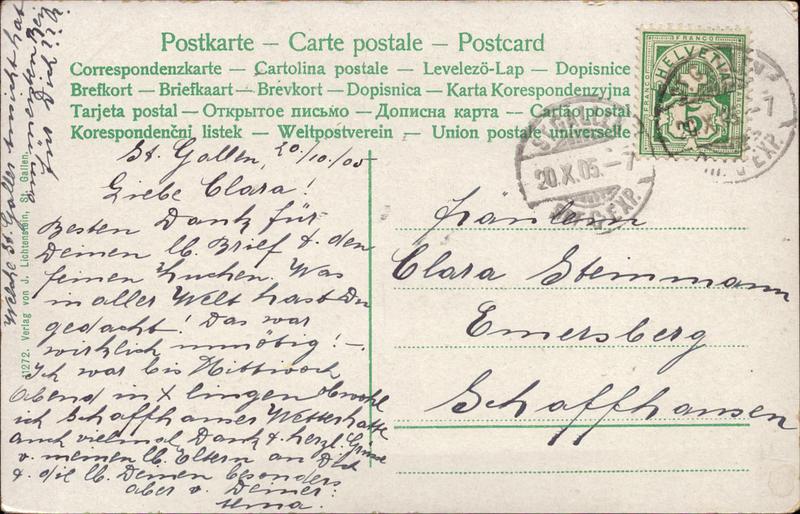 Postkarte – Carte postale – Postcard
Correspondenzkarte — Cartolina postale — Levelező-Lap — Dopisnice
Brefkort — Briefkaart — Brevkort — Dopisnica — Karta Korespondenzyjna
Tarjeta postal — Открытое письмо — Дописна карта — Cartão postal
Korespondenční listek — Weltpostverein — Union postale universelle
HELVETIA
FRANCO
5
20.X.05.–7
BRF.EXP.
St. Gallen, 20/10/05
Liebe Clara!
Besten Dank für
Deinen lb. Brief & den
feinen Kuchen. Was
in aller Welt hast Du
gedacht! Das war
wirklich unnötig! –.
Ich war bis Mittwoch
Abend in lingen obwohl
ich Schaffhauser Wetter hatte
auch vielmal Dank & herzl. Grüsse
v. meinen lb. Eltern an Dich
& die lb. Deinen besonders
aber v. Deiner
Erna.
Welche St. Galler
für Dich???
11272. Verlag von J. Lichtenstein, St. Gallen.
Fräulein
Clara Steinmann
Emersberg
Schaffhausen